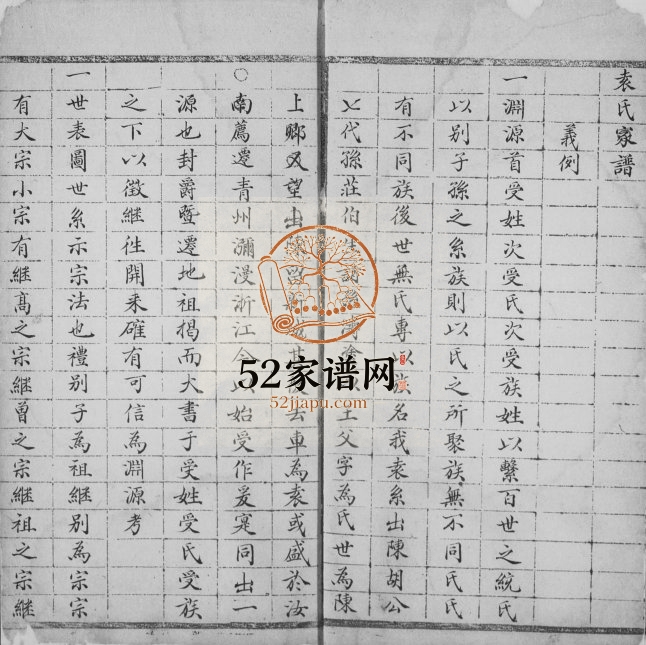 袁氏家譜
義例
一淵源首受姓次受氏次受族姓以繫百世之統氏
以别子孫之系族則以氏之所聚族無不同氏氏
有不同族後世無氏專以族名我袁系出陳胡公
七代孫莊伯 王父字為氏世為陳
上卿又望出陳 去車為袁或盛於汝
南薦遷青州瀰漫浙江 始受作爰寔同出一
源也封爵暨遷地祖揭而大書于受姓受氏受族
之下以徵継徃開来確有可信為淵源考
一世表圖世系示宗法也禮别子為祖継别為宗宗
有大宗小宗有継髙之宗継曽之宗継祖之宗継
52家谱网
52jiapu.com